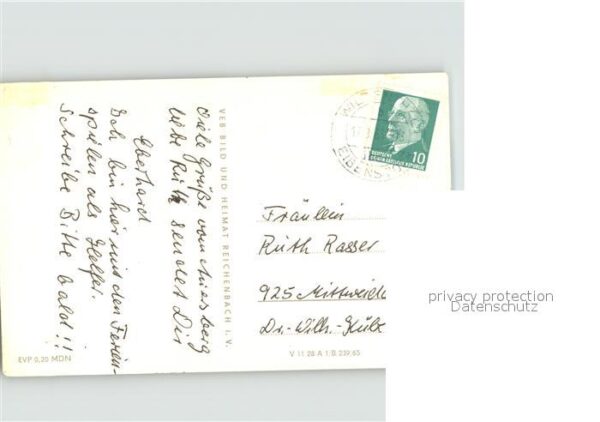 Viele Grüße vom Auersberg
liebe Ruth sendet Dir
Eberhard
Ich bin hier mit den Ferien-
spielen als Helfer.
Schreibe Bitte bald!!
VEB BILD UND HEIMAT REICHENBACH I. V.
10
DEUTSCHE
DEMOKRATISCHE REPUBLIK
EIBENST
Fräulein
Ruth Rasser
925 Mittweida
Dr.-Wilh.-Külz
EVP 0,20 MDN
V 11 28 A 1/B 239/65
privacy protection
Datenschutz